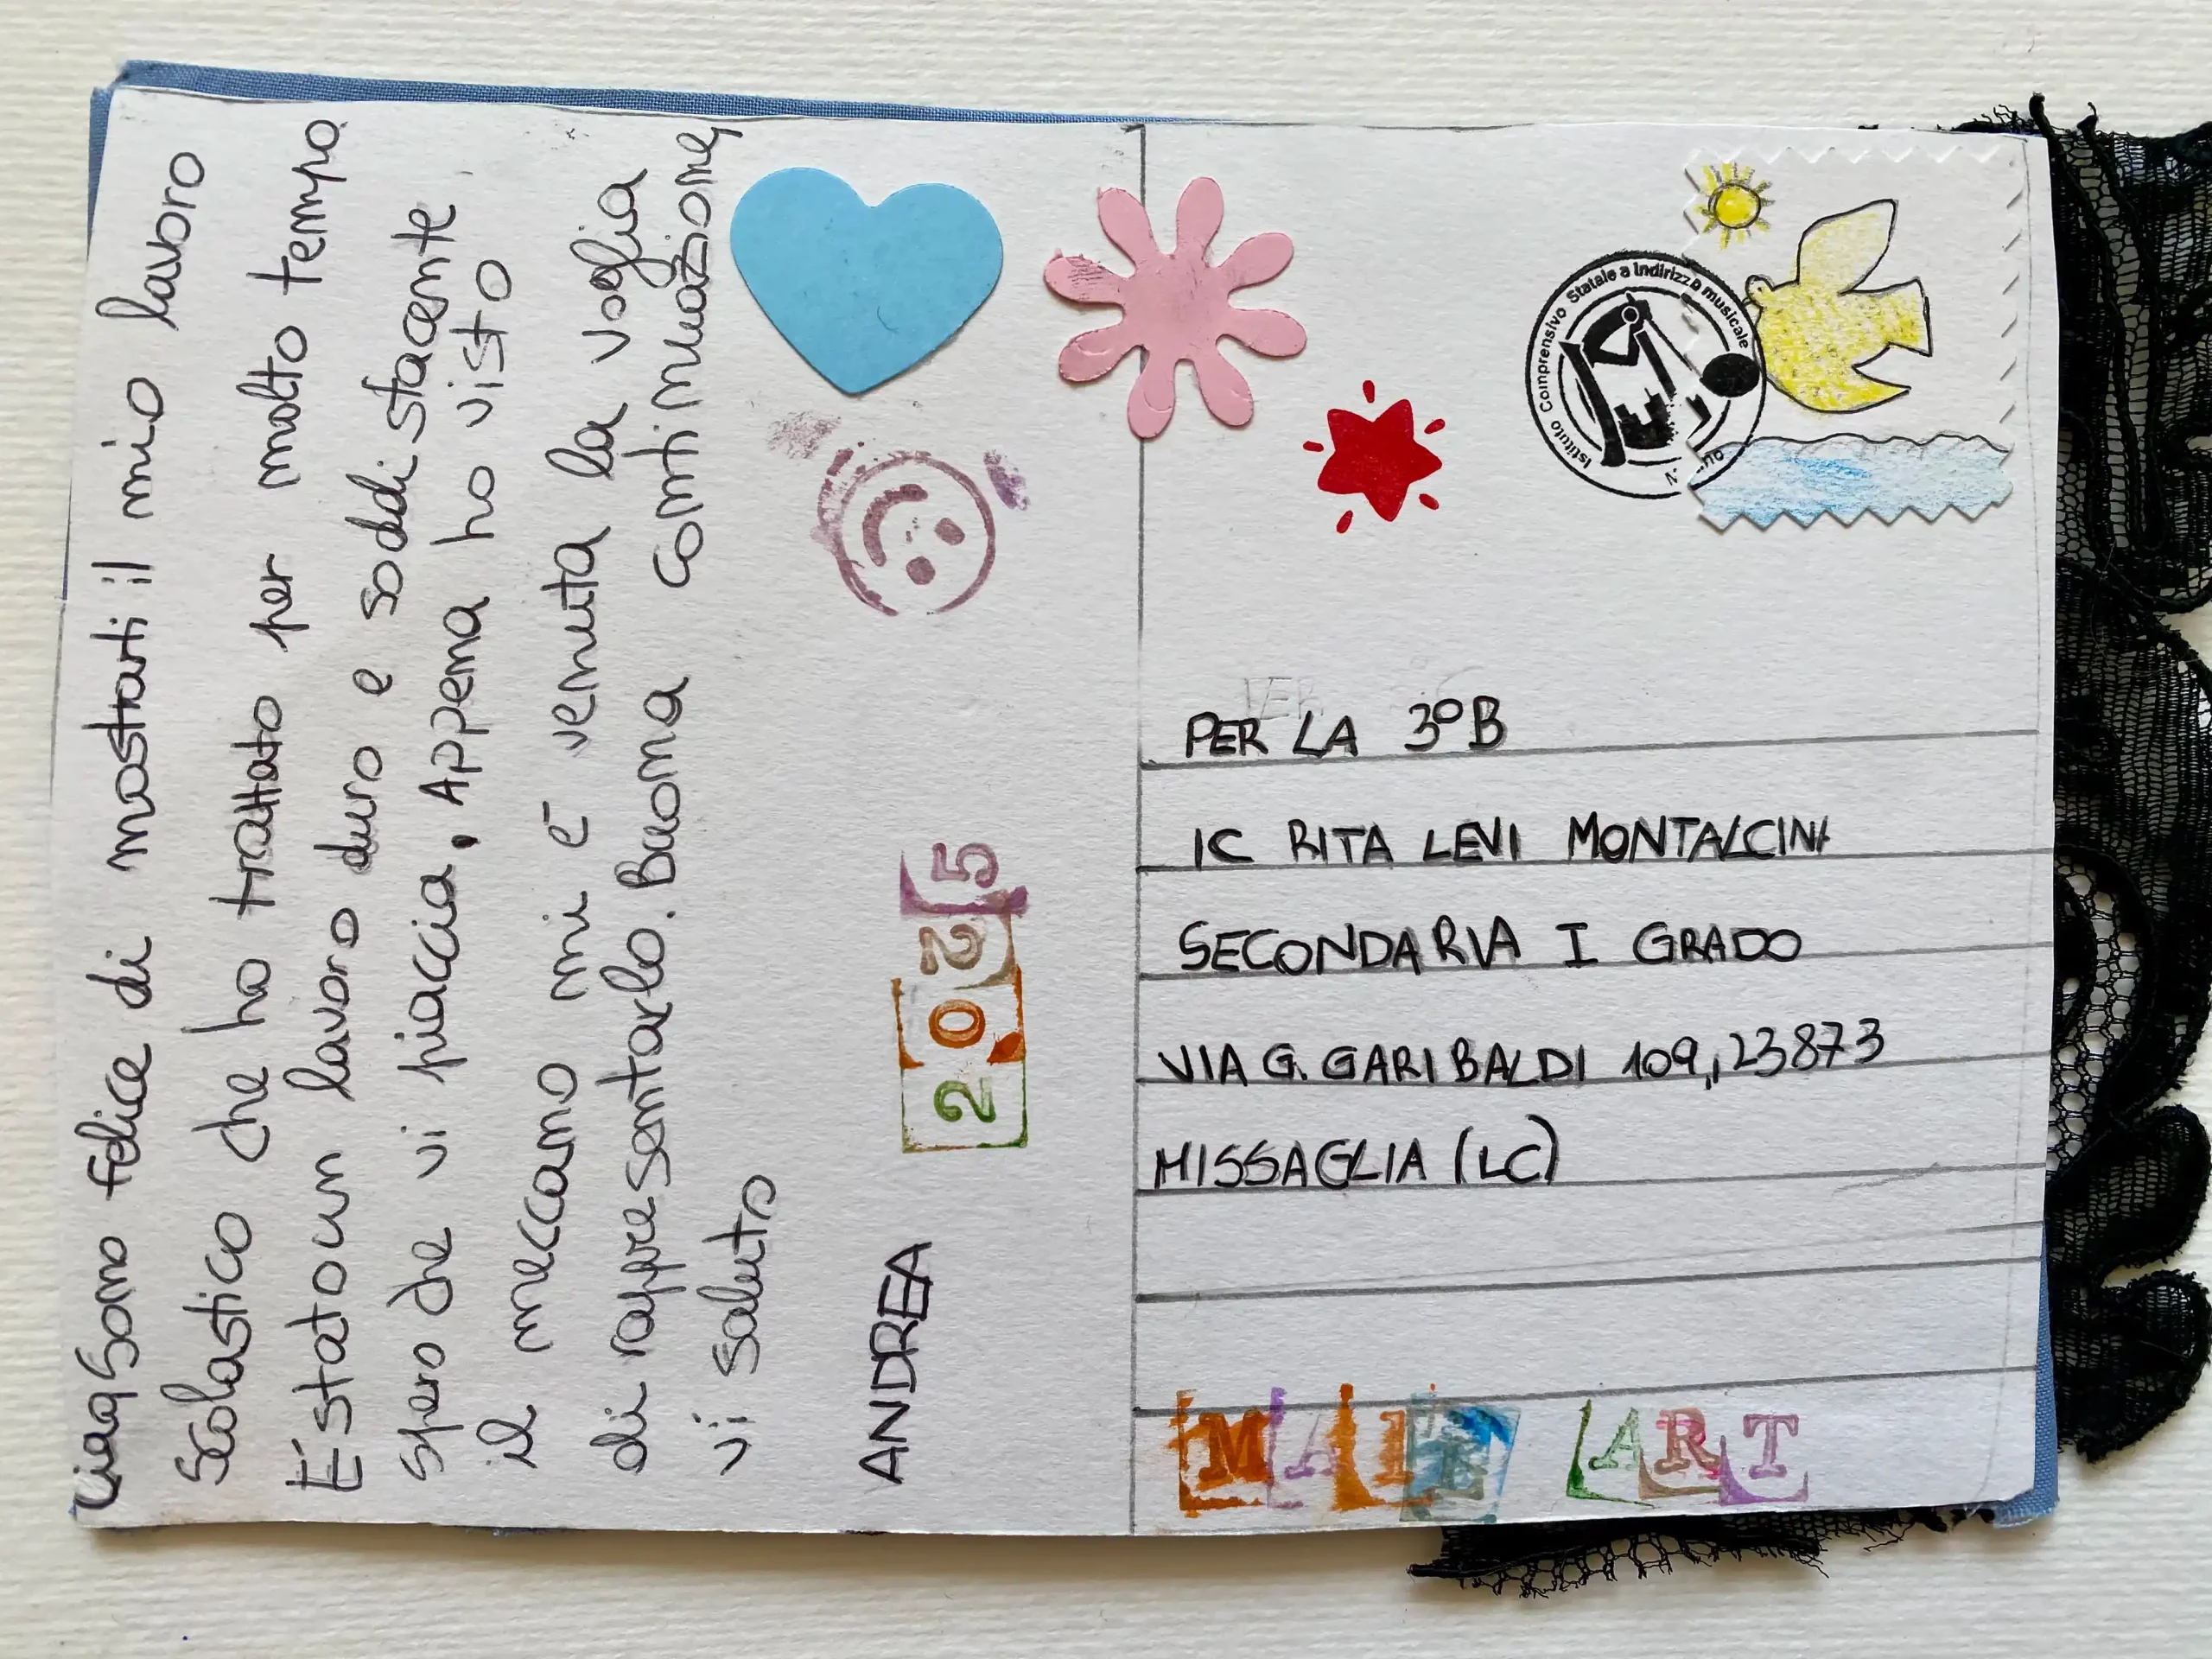 Ciao, Sono felice di mostrarti il mio lavoro
Scolastico che ho trattato per molto tempo
É stato un lavoro duro e soddistacente
spero che vi piaccia. Appena ho visto
il meccano mi é venuta la voglia
di rappresentarlo. Buona continuazione,
vi saluto
ANDREA
2025
Istituto Comprensivo Statale a Indirizzo musicale
PER LA 3°B
IC RITA LEVI MONTALCINI
SECONDARIA I GRADO
VIA G. GARIBALDI 109, 23873
MISSAGLIA (LC)
MAIL ART